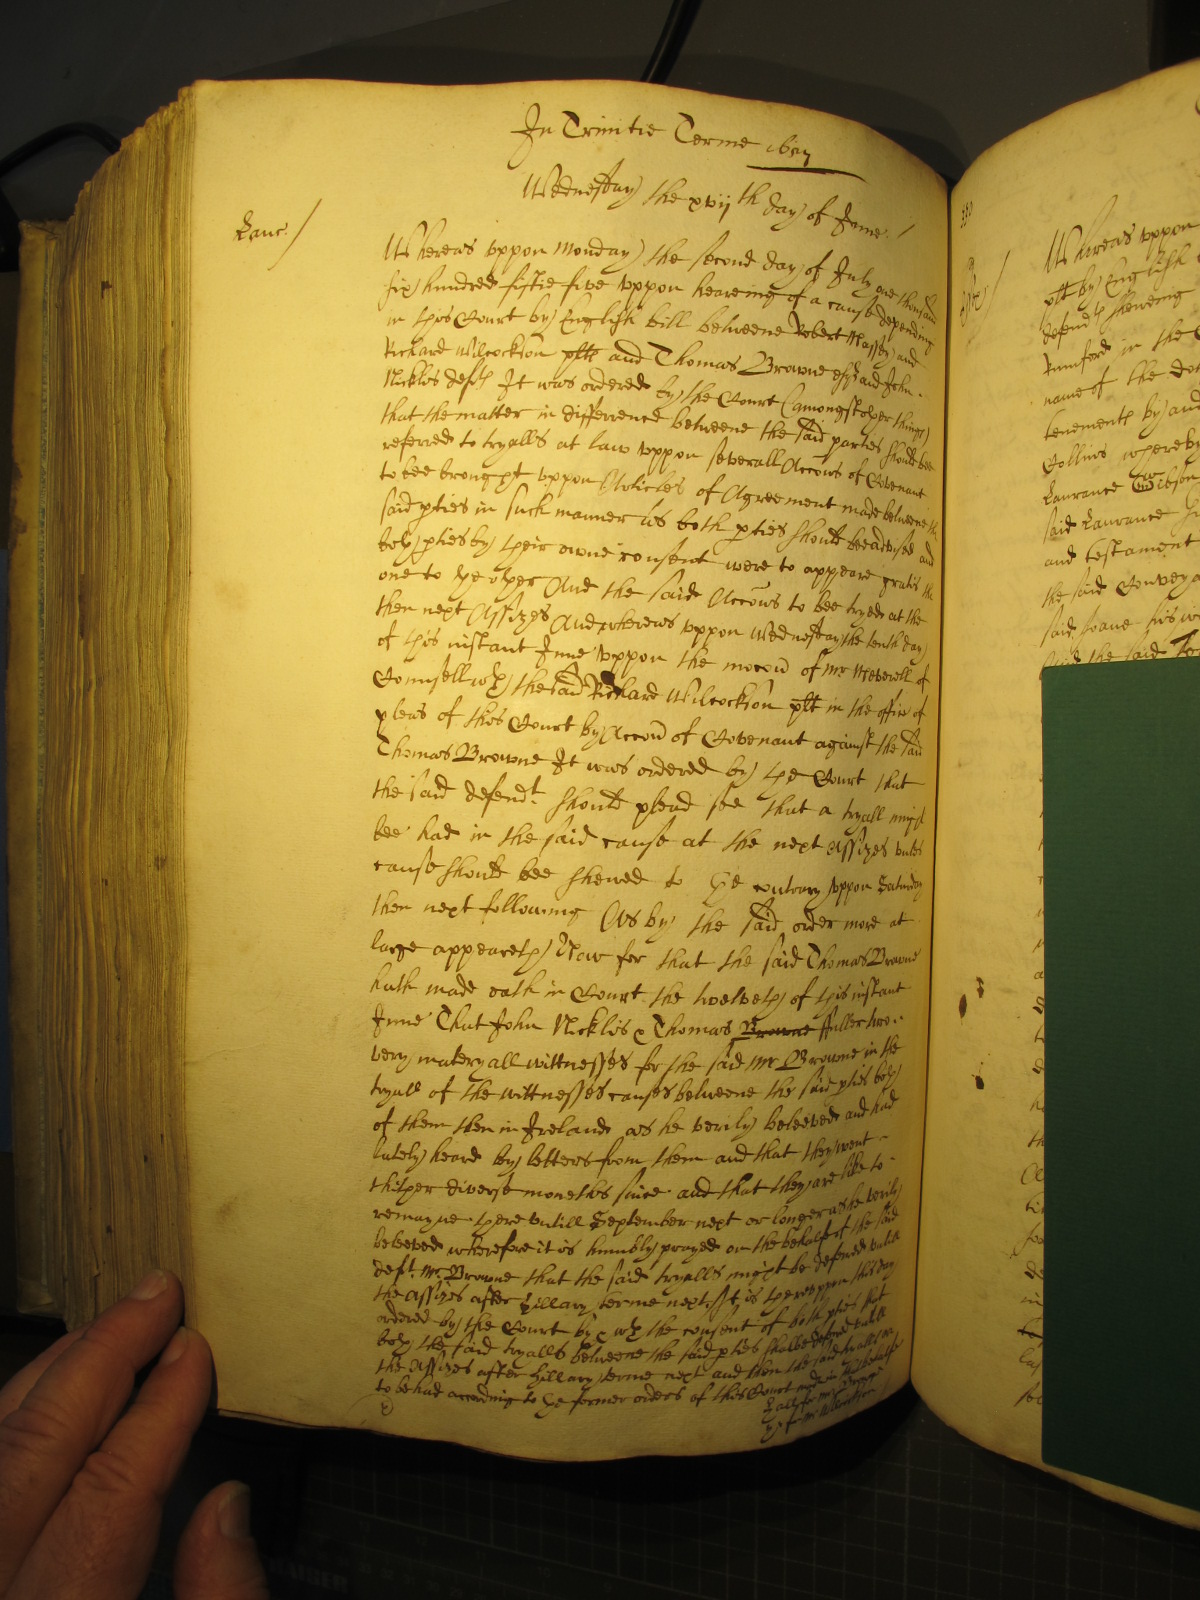 In Trinitie Terme 1657
Wednesday the xvijth day of June
Lanc.
Whereas vppon Monday the second day of July one thousand
six hundred fiftie five vppon heareing of a cause depending
in this Court by English bill betweene Robert Massey and
Richard Wilcockson plts and Thomas Browne esqr and John
Nicklos defts It was ordered by the Court (amongst other things)
that the matter in differrence betweene the said parties should bee
referred to tryalls at law vppon severall Accons of Covenant
to bee brought vppon Articles of Agreement made betweene the
said pties in such manner as both pties should bee advised and
both pties by their owne consent were to appeare gratis the
one to the other And the said Accons to bee tryed at the
then next Assizes And wherews vppon Wednesday the tenth day
of this instant June vppon the mocon of Mr of
Counsell wth the said Richard Wilcockson plt in the office of
pleas of this Court by Accon of Covenant against the said
Thomas Browne It was ordered by the Court that
the said defendt. should plead soe that a tryall might
bee had in the said cause at the next Assizes vnles
cause should bee shewed to the contrary vppon Saturday
then next following As by the said order more at
large appeareth Now for that the said Thomas Browne
hath made oath in Court the twelveth of this instant
June That John Nicklos & Thomas Browne ffuller two
very materyall wittnesses for the said Mr Browne in the
tryall of the wittnesses causes betweene the said pties both
of them then in Ireland as he verily beleeved and had
lately heard by letters from them and that they went
thither diverse moneths since and that they are like to
remayne there vntill September next or longer as he verily
beleeved wherefore it is humbly prayed on the behalfe of the said
deft. Mr. Browne that the said tryalls might be deferred vntill
the assizes after Hillary terme next. It is therevppon this day
ordered by the Court by & wth the consent of both pties that
both the said tryalls betweene the said pties shalbe deferred vntill
the Assizes after Hillary terme next and then the said tryalls are
to be had according to the former orders of this Court made in this behalfe
for Mr Browne
for Mr
Whereas vppon
plt by English
defendts shewing
Rumford in the
name of the
tenements by and
Collins whereby
Laurance Gibson
said Laurance
and testament
the said Convey
said Joane his